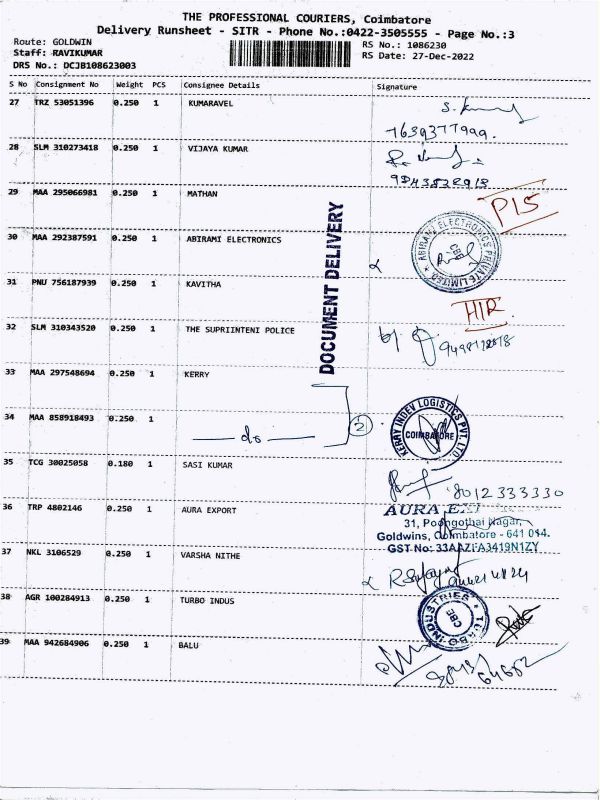 THE PROFESSIONAL COURIERS, Coimbatore
Delivery Runsheet - SITR - Phone No.:0422-3505555 - Page No.:3
Route: GOLDWIN
RS No.: 1086230
Staff: RAVIKUMAR
RS Date: 27-Dec-2022
DRS No.: DCJB108623003
S No Consignment No Weight PCS Consignee Details Signature
27 TRZ 53051396 0.250 1 KUMARAVEL
28 SLM 310273418 0.250 1 VIJAYA KUMAR
29 MAA 295066981 0.250 1 MATHAN
P1S
30 MAA 292387591 0.250 1 ABIRAMI ELECTRONICS
ABIRAMI ELECTRONICS PRIVATE LIMITED
CBE
DOCUMENT DELIVERY
31 PNU 756187939 0.250 1 KAVITHA
32 SLM 310343520 0.250 1 THE SUPRIINTENI POLICE
33 MAA 297548694 0.250 1 KERRY
34 MAA 858918493 0.250 1
do
2
KERRY INDEV LOGISTICS PVT. LTD
COIMBATORE
35 TCG 30025058 0.180 1 SASI KUMAR
8012333330
36 TRP 4802146 0.250 1 AURA EXPORT
AURA
31, Poongothai Nagar,
Goldwins, Coimbatore - 641 014.
GST No: 33AAZFA3419N1ZY
37 NKL 3106529 0.250 1 VARSHA NITHE
38 AGR 100284913 0.250 1 TURBO INDUS
TURBO INDUSTRIES
CBE
39 MAA 942684906 0.250 1 BALU